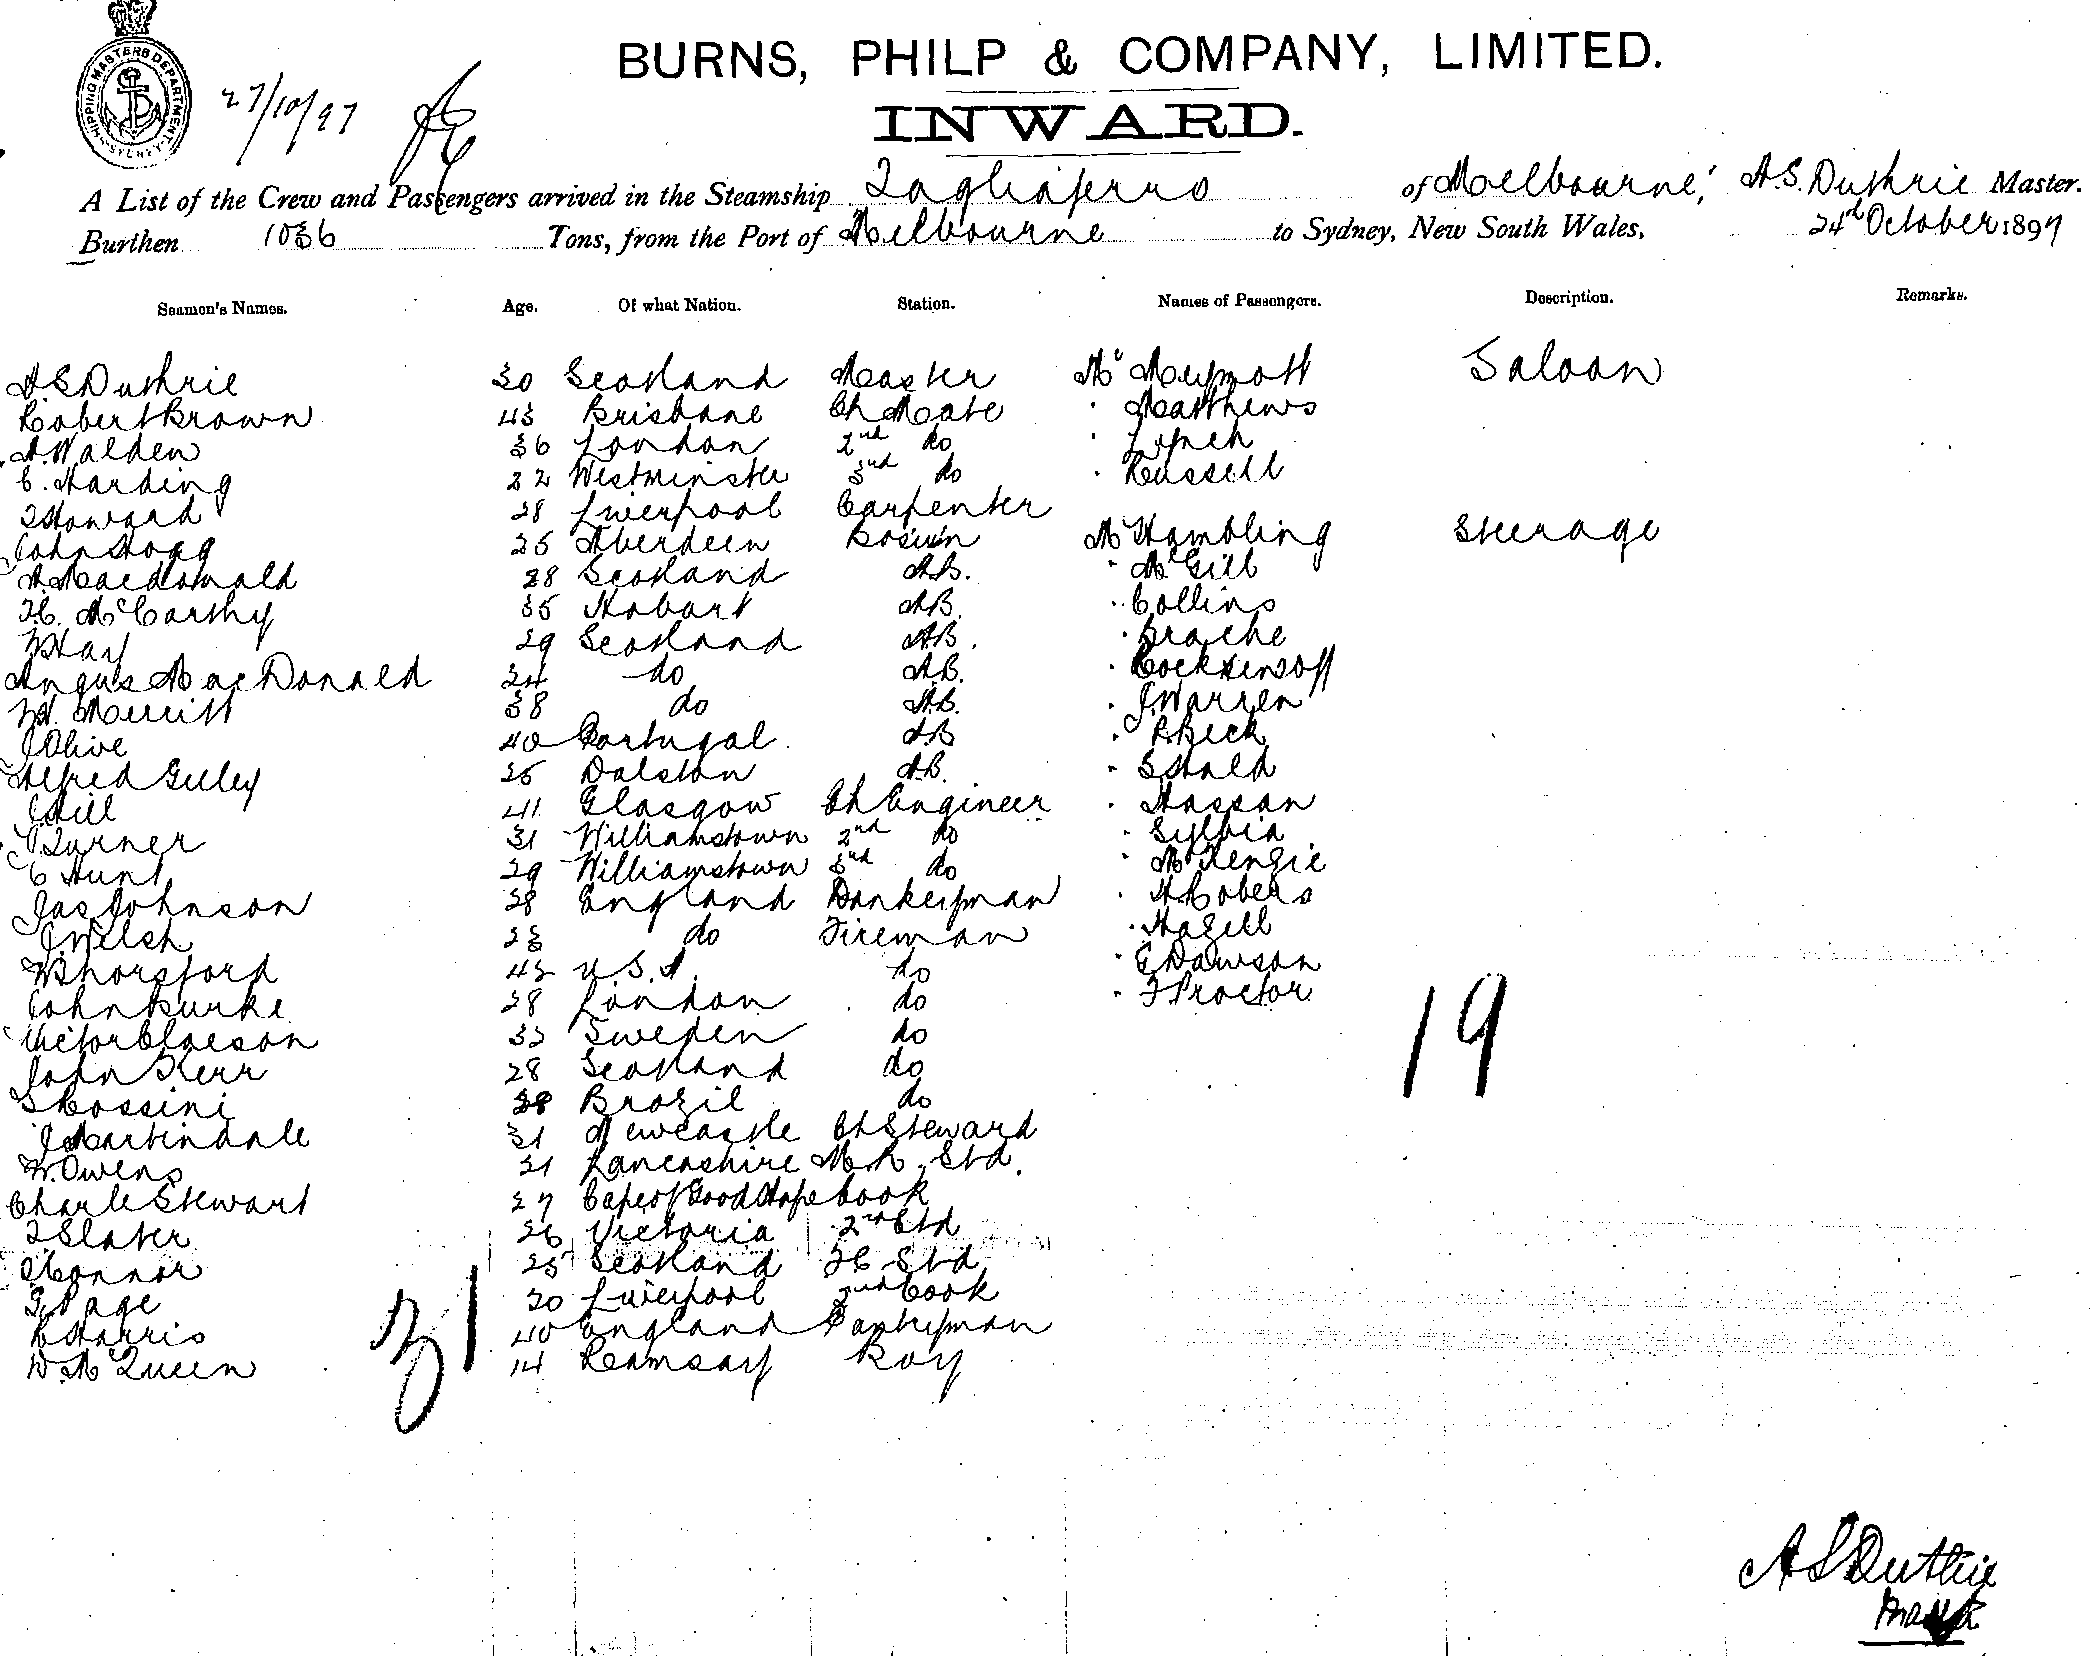 SHIPPING MASTERS DEPARTMENT SYDNEY
27/10/97
BURNS, PHILP & COMPANY, LIMITED.
INWARD.
A List of the Crew and Passengers arrived in the Steamship Tagliaferro of Melbourne, A.S. Duthrie Master.
Burthen 1036 Tons, from the Port of Melbourne to Sydney, New South Wales, 24th October 1897
Seamen's Names. Age. Of what Nation. Station. Names of Passengers. Description. Remarks.
A.S Duthrie 30 Scotland Master Mr Meymott Saloon
Robert Brown 43 Brisbane Ch Mate " Matthews
A. Walden 36 London 2nd do " Lynch
C. Harding 22 Westminster 3rd do " Russell
T Howard 28 Liverpool Carpenter
John Hogg 25 Aberdeen Bosun Mr Hambling Steerage
A. Macdonald 28 Scotland AB. " McGill
H.C. McCarthy 35 Hobart AB. " Collins
W Hay 29 Scotland AB. " Brache
Angus MacDonald 24 do AB. "
W. Merritt 38 do AB. " J. Warren
J Olive 40 Portugal AB " R Beck
Alfred Gulley 25 Dalston AB. " S Hald
J Hill 41 Glasgow Ch Engineer " Hassan
J. Turner 31 Williamstown 2nd do " Sylvia
C Hunt 29 Williamstown 3rd do " McKenzie
Jas Johnson 28 England Donkeyman " H Robers
J. Welsh 23 do Fireman " Hazell
W Bhorsford 42 U.S.A. do " C Dawson
John Burke 28 London do " F Proctor
Victor Claeson 32 Sweden do
19
John Kerr 28 Scotland do
S Rossini 28 Brazil do
J Martindale 31 Newcastle Ch Steward
W. Owens 21 Lancashire M.R. Std.
Charle Stewart 27 Cape of Good Hope Cook
T Slater 26 Victoria 2nd Std
Connor 25 Scotland F.C Std
G. Page 20 Liverpool 2nd Cook
C Harris 40 England Pantryman
D. McQueen 14 Ramsay Boy
31
A S Duthie
Master